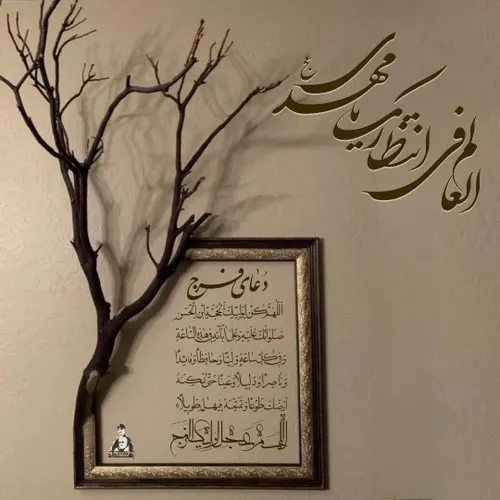 العالم فی انتظارک یا مهدی ع
دعای فرج
اللهم کن لولیک الحجة ابن الحسن
صلواتک علیه وعلی آبائه فی هذه الساعة
وفی کل ساعة ولیا وحافظا وقائدا
وناصرا ودلیلا وعینا حتی تسکنه
ارضک طوعا وتمتعه فیها طویلا
اللهم عجل لولیک الفرج